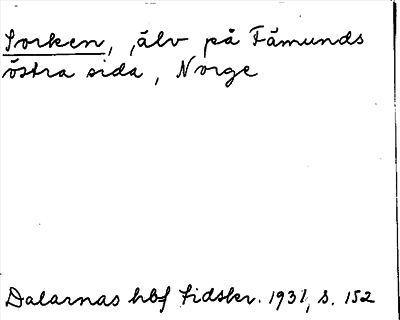 Sorken, älv på Fämunds
östra sida, Norge
Dalarnas hbf tidskr. 1931, s. 152